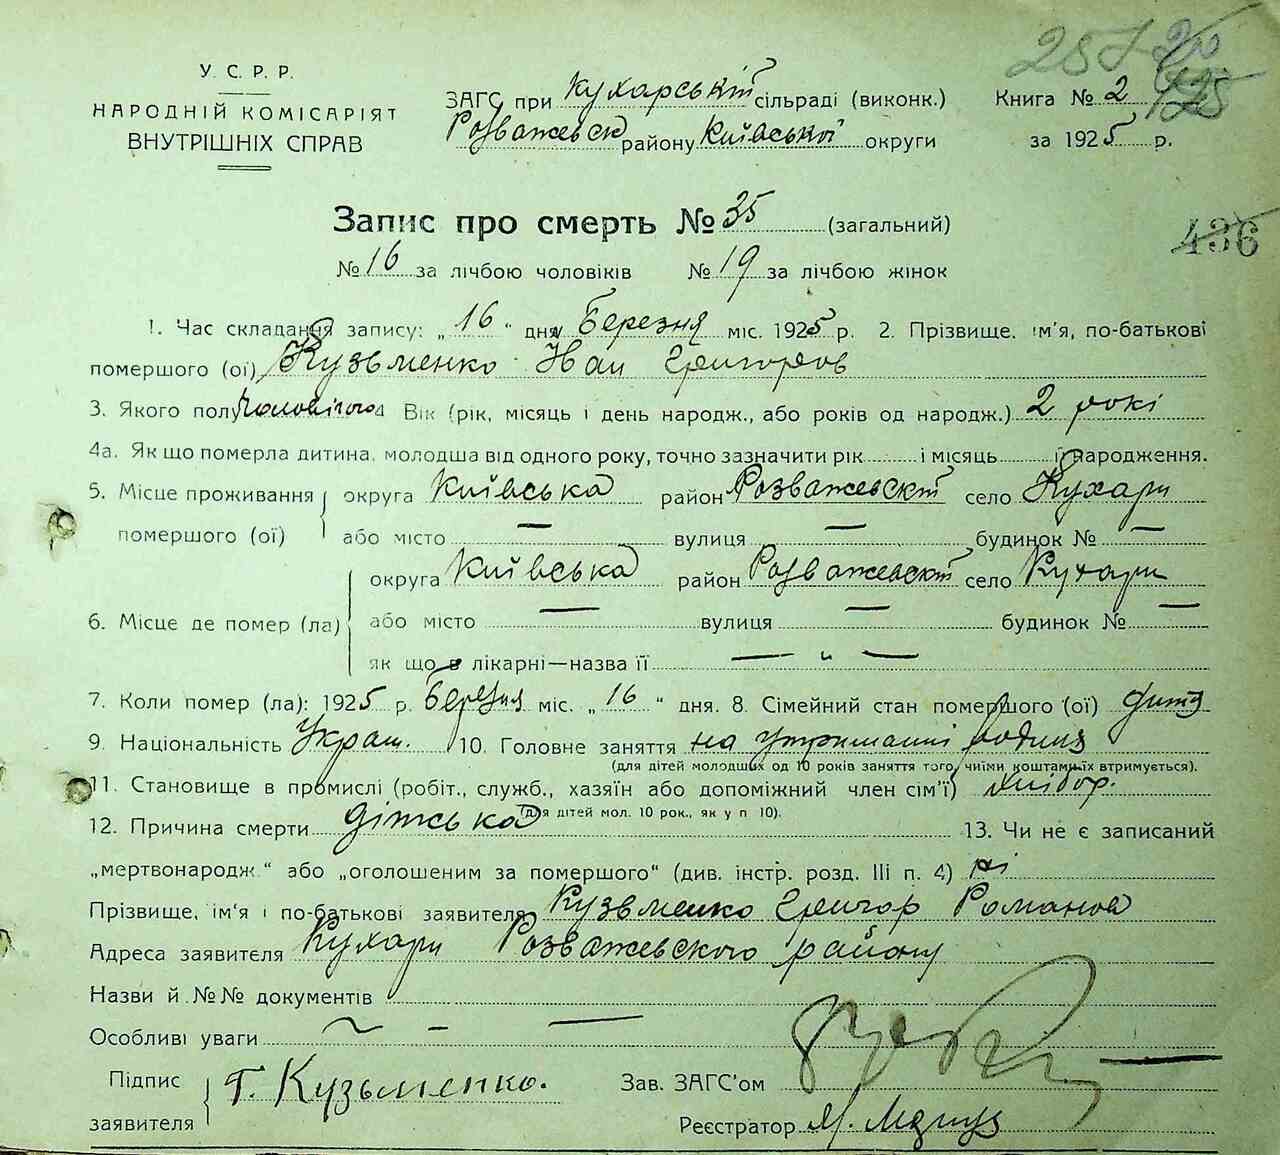 У. С. Р. Р.
НАРОДНІЙ КОМІСАРІЯТ
ВНУТРІШНІХ СПРАВ
ЗАГС при Кухарській сільраді (виконк.)
Розважевск району Київської округи
Книга № 2
за 1925 р.
436
Запис про смерть № 35 (загальний)
№ 16 за лічбою чоловіків № 19 за лічбою жінок
1. Час складання запису: „16" дня Березня міс. 1925 р. 2. Прізвище, ім'я, по-батькові
помершого (ої) Кузьменко Иван Григоров
3. Якого полу Чоловічого 4 Вік (рік, місяць і день народж., або років од народж.) 2 рокі
4а. Як що померла дитина, молодша від одного року, точно зазначити рік і місяць її народження.
5. Місце проживання округа Київська район Розважевскій село Кухари
помершого (ої) або місто — вулиця — будинок № —
округа Київська район Розважевскій село Кухари
6. Місце де помер (ла) або місто — вулиця — будинок № —
як що в лікарні—назва її — „ —
7. Коли помер (ла): 1925 р. Березня міс. „16" дня. 8. Сімейний стан помершого (ої) дитя
9. Національність Украш. 10. Головне заняття на утриманні родини
(для дітей молодших од 10 років заняття того, чиїми коштами їх втримується).
11. Становище в промислі (робіт., служб., хазяїн або допоміжний член сім'ї) хлібор.
(для дітей мол. 10 рок., як у п 10).
12. Причина смерти дітська 13. Чи не є записаний
„мертвонародж." або „оголошеним за помершого" (див. інстр. розд. III п. 4) ні
Прізвище, ім'я і по-батькові заявителя Кузьменко Григор Романов
Адреса заявителя Кухари Розважевского району
Назви й №№ документів
Особливі уваги — — —
Підпис заявителя Г. Кузьменко.
Зав. ЗАГС'ом
Реєстратор М.